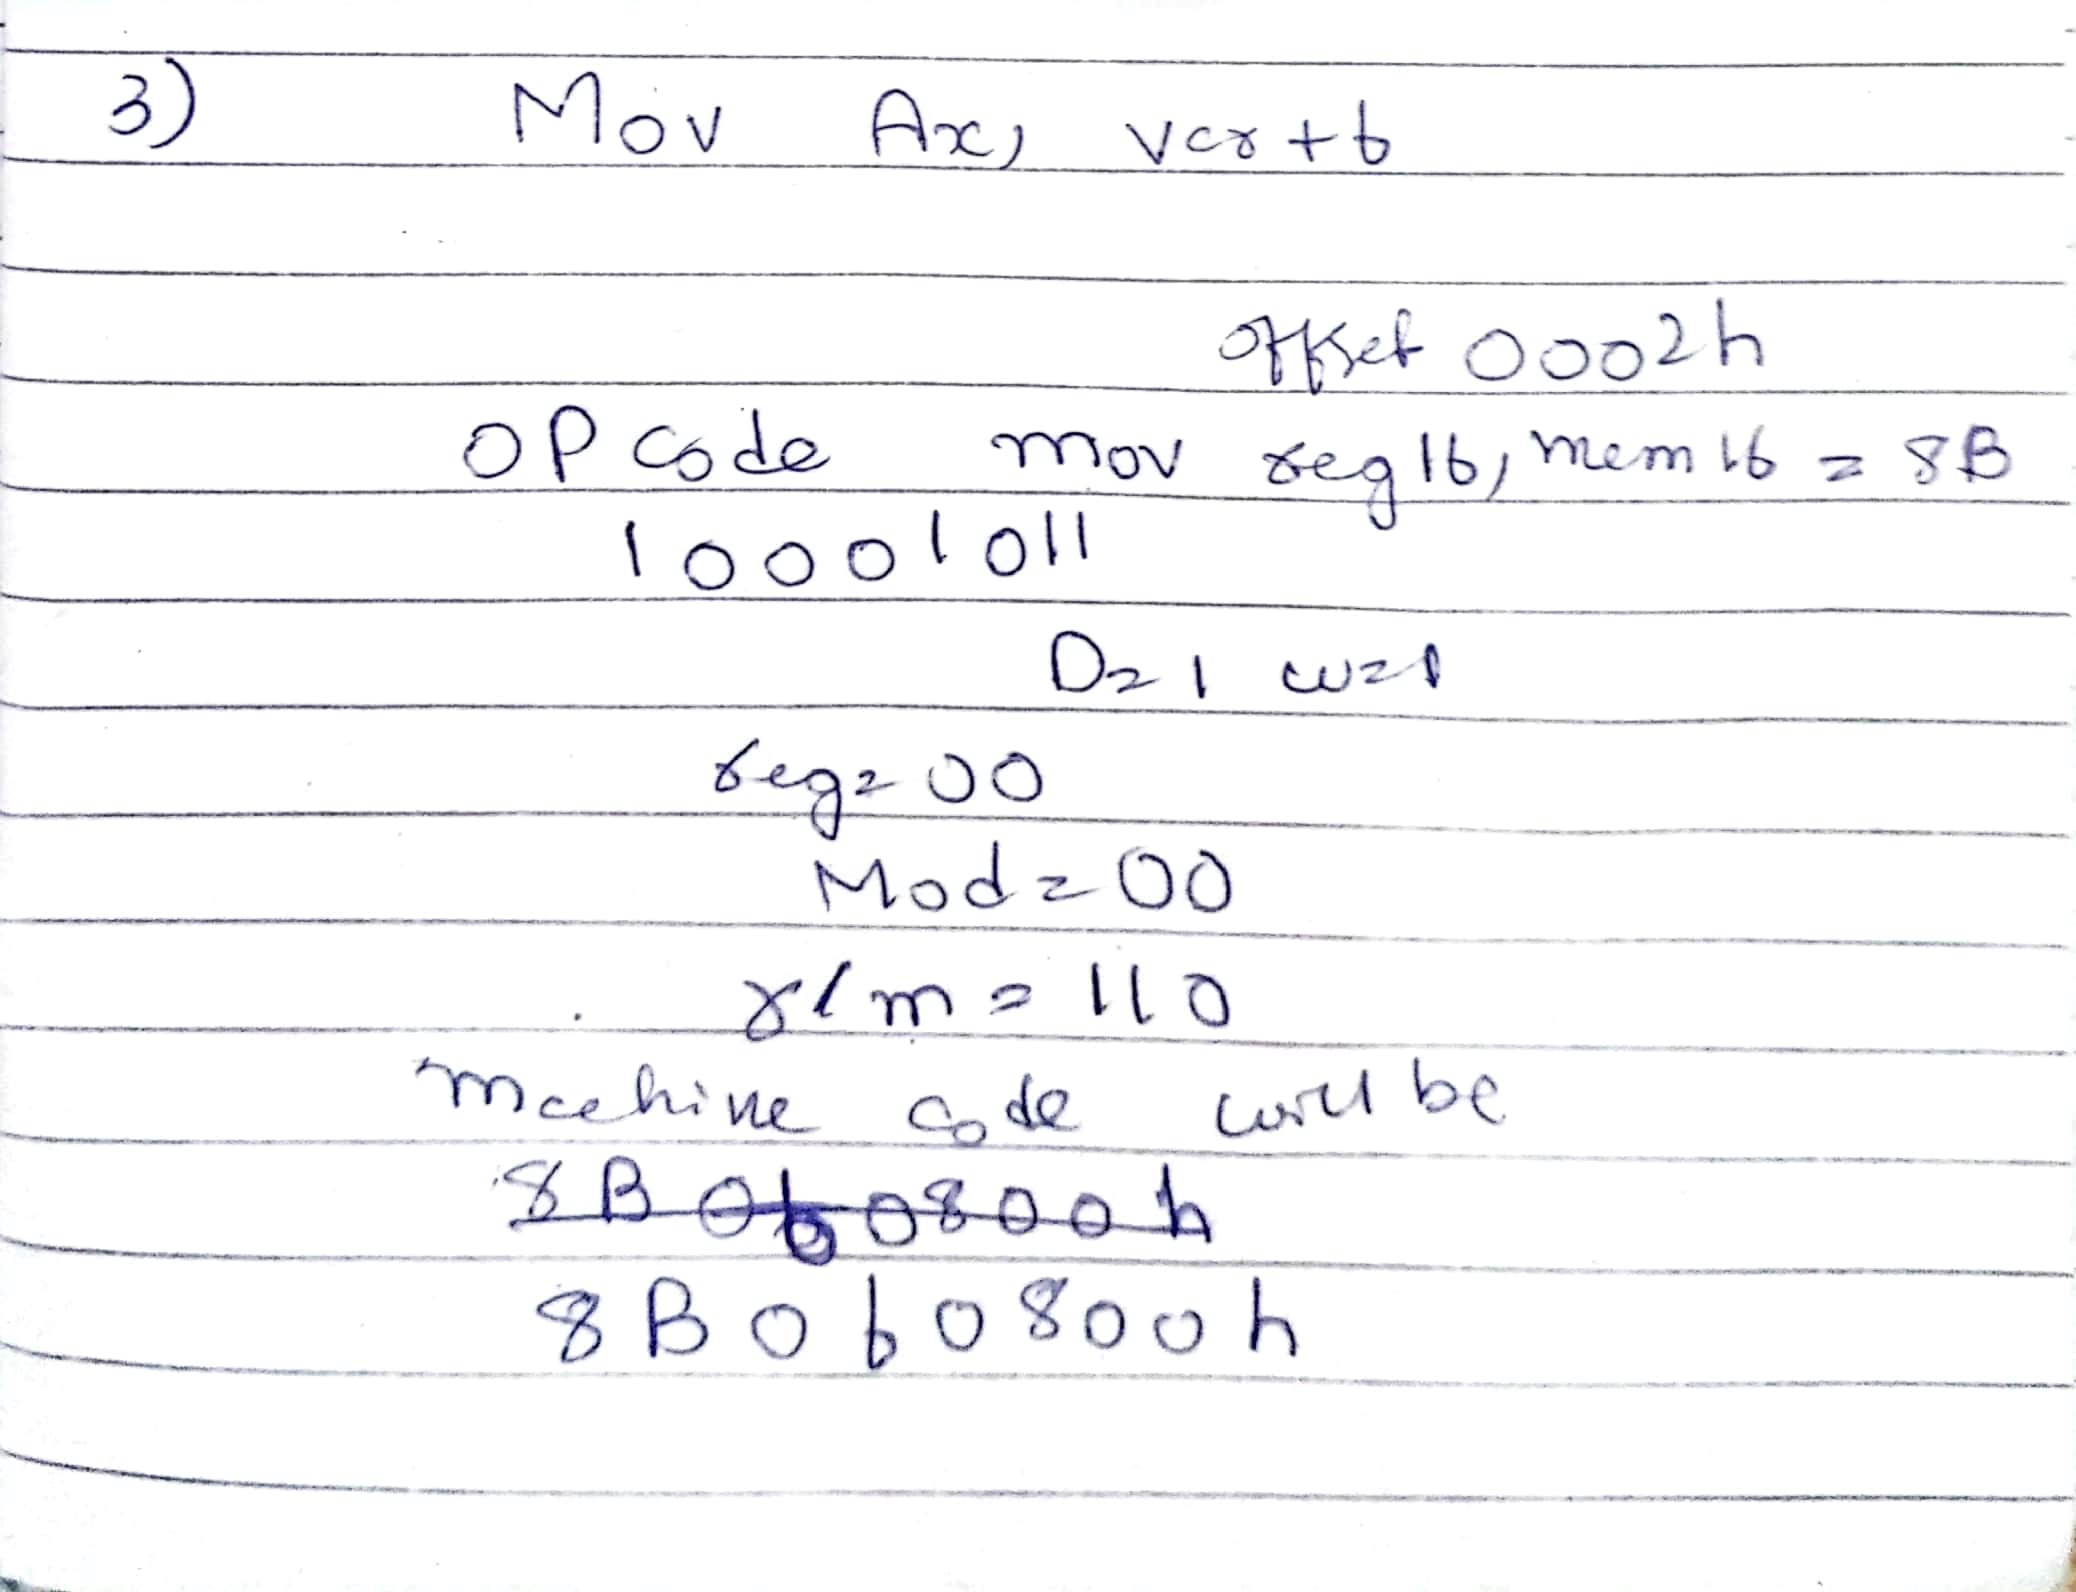 3) Mov Ax, var+6
offset 0002h
OP code mov reg16, mem16 = 8B
10001011
D=1 w=1
reg=00
Mod=00
r/m=110
machine code will be
8B060800h
8B060800h